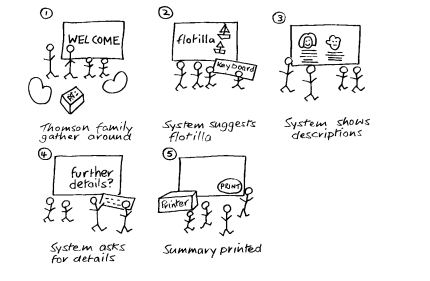 1
WELCOME
Thomson family
gather around
2
flotilla
Keyboard
System suggests
flotilla
3
System shows
descriptions
4
further
details?
System asks
for details
5
PRINT
Printer
Summary printed